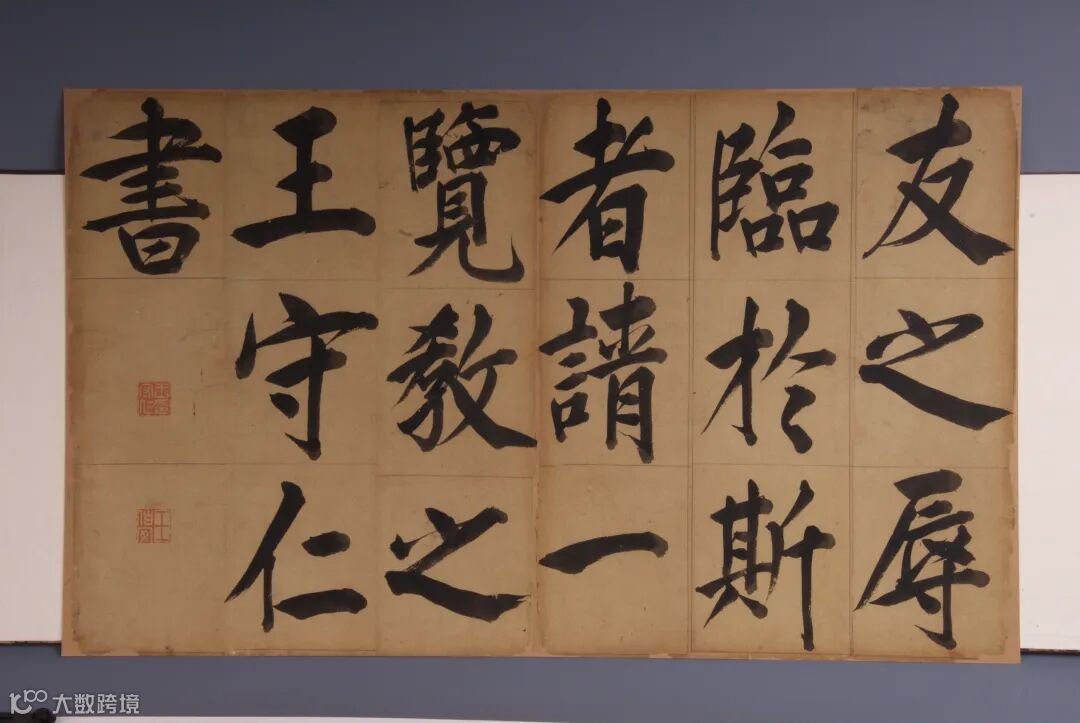 友之辱
臨於斯
者請一
覽教之
王守仁
書
大数跨境